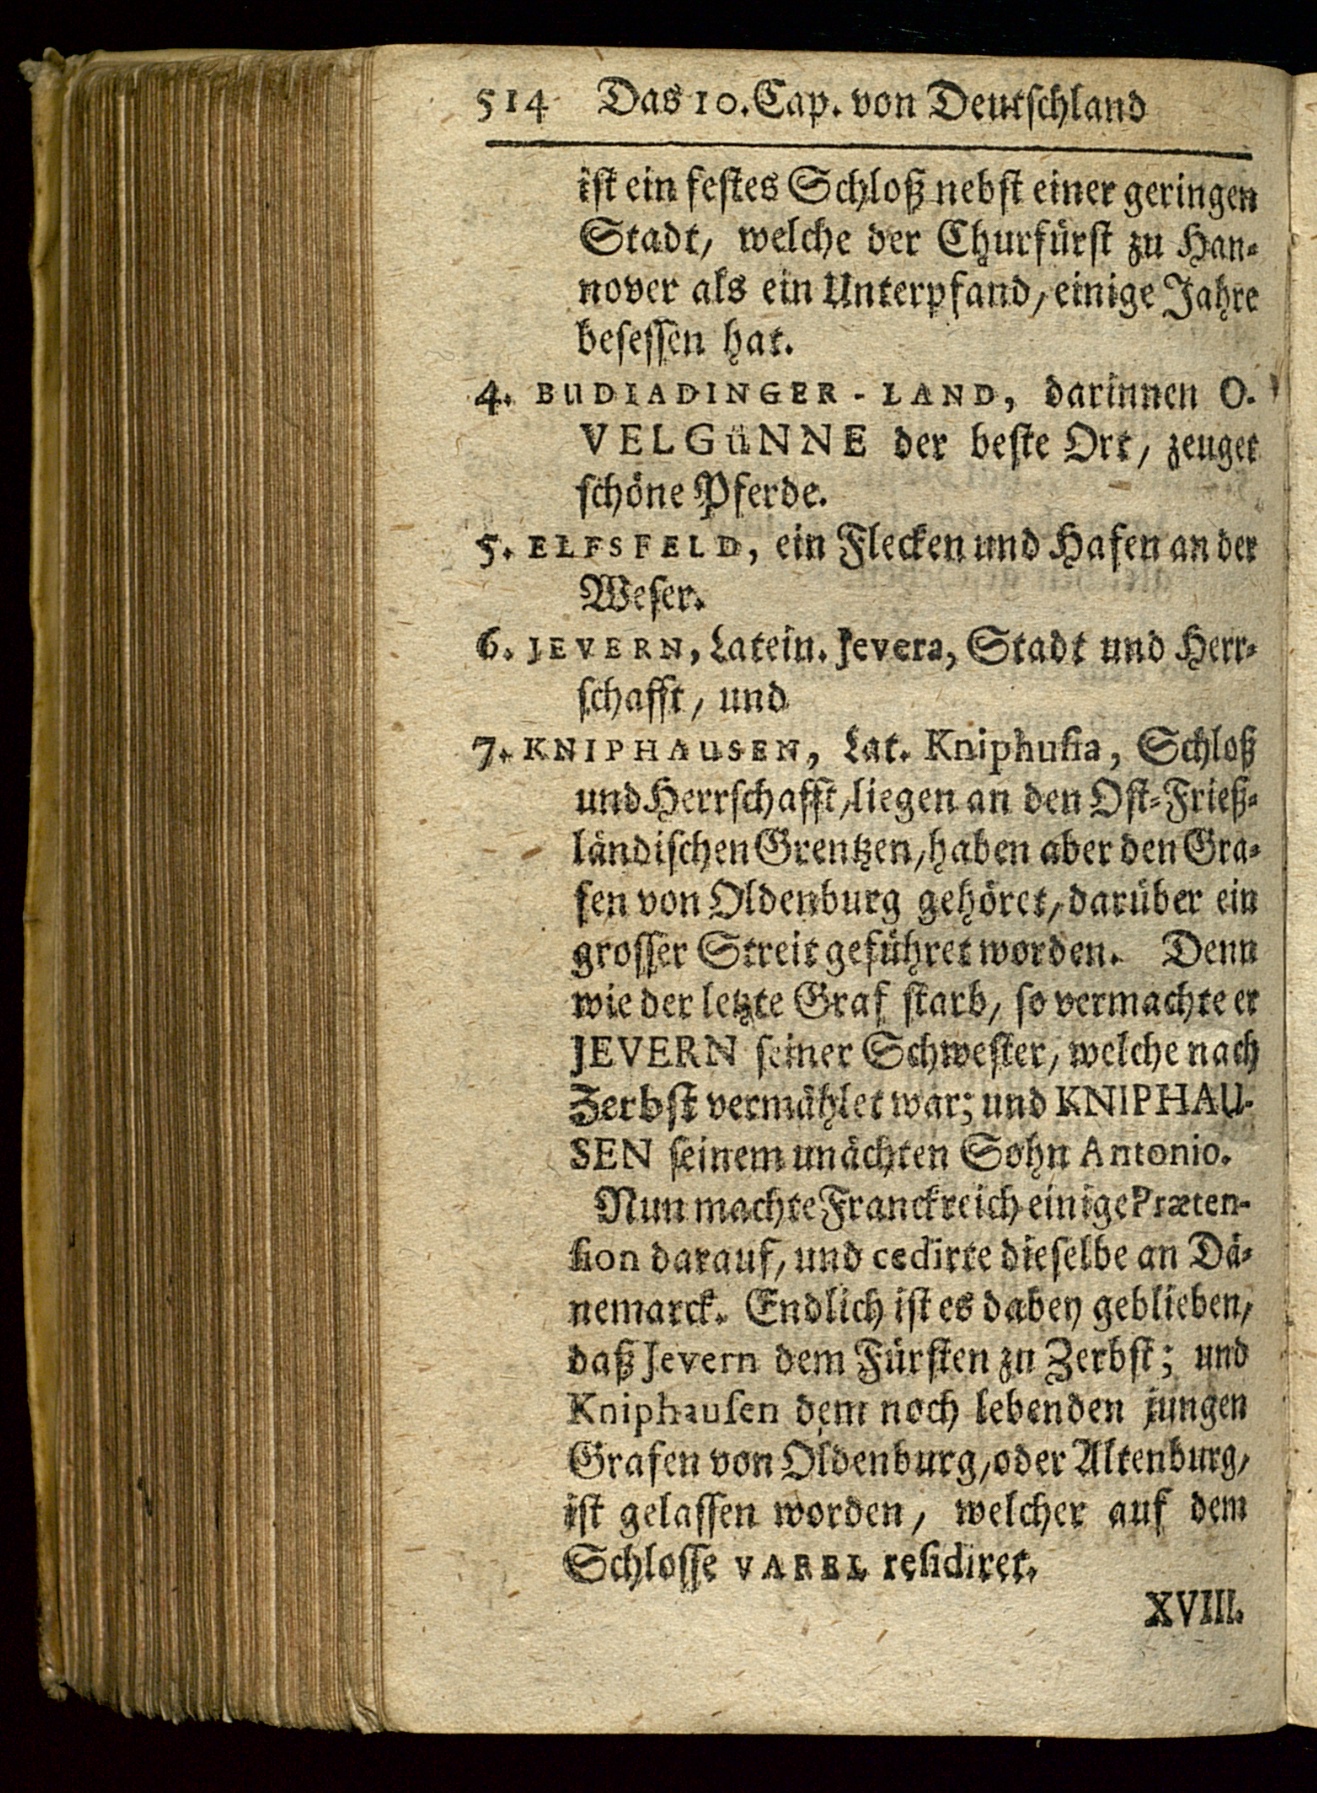 514 Das 10. Cap. von Deutschland
ist ein festes Schloß nebst einer geringen
Stadt, welche der Churfürst zu Han-
nover als ein Unterpfand, einige Jahre
besessen hat.
4. BUDIADINGER-LAND, darinnen O-
VELGüNNE der beste Ort, zeuget
schöne Pferde.
5. ELFSFELD, ein Flecken und Hafen an der
Weser.
6. JEVERN, Latein. Jevera, Stadt und Herr-
schafft, und
7. KNIPHAUSEN, Lat. Kniphusia, Schloß
und Herrschafft, liegen an den Ost-Frieß-
ländischen Grentzen, haben aber den Gra-
fen von Oldenburg gehöret, darüber ein
grosser Streit geführet worden. Denn
wie der letzte Graf starb, so vermachte er
JEVERN seiner Schwester, welche nach
Zerbst vermählet war; und KNIPHAU-
SEN seinem unächten Sohn Antonio.
Nun machte Franckreich einige Præten-
sion darauf, und cedirte dieselbe an Dä-
nemarck. Endlich ist es dabey geblieben,
daß Jevern dem Fürsten zu Zerbst; und
Kniphausen dem noch lebenden jungen
Grafen von Oldenburg, oder Altenburg,
ist gelassen worden, welcher auf dem
Schlosse VAREL residiret.
XVIII.